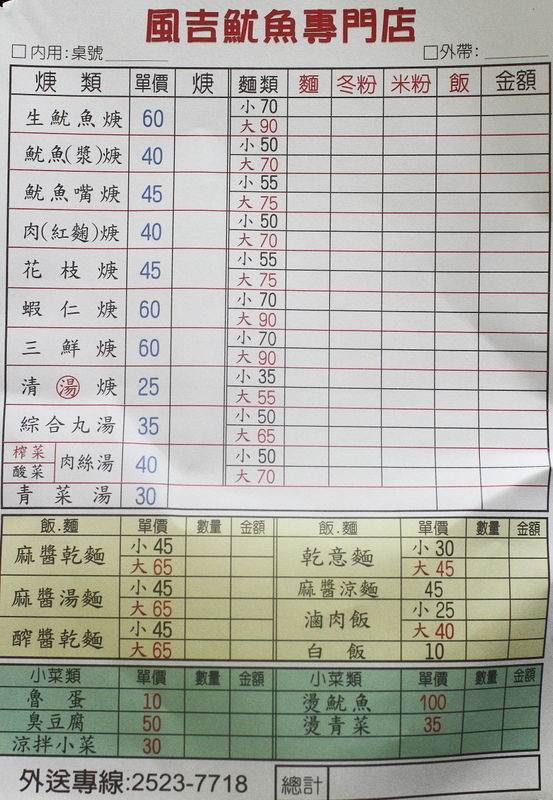 風吉魷魚專門店
□內用:桌號 □外帶:
焿類 單價 焿 麵類 麵 冬粉 米粉 飯 金額
生魷魚焿 60 小70 大90
魷魚(漿)焿 40 小50 大70
魷魚嘴焿 45 小55 大75
肉(紅麴)焿 40 小50 大70
花枝焿 45 小55 大75
蝦仁焿 60 小70 大90
三鮮焿 60 小70 大90
清湯焿 25 小35 大55
綜合丸湯 35 小50 大65
榨菜 酸菜 肉絲湯 40 小50 大70
青菜湯 30
飯.麵 單價 數量 金額 飯.麵 單價 數量 金額
麻醬乾麵 小45 大65 乾意麵 小30 大45
麻醬湯麵 小45 大65 麻醬涼麵 45
滷肉飯 小25 大40
醡醬乾麵 小45 大65 白飯 10
小菜類 單價 數量 金額 小菜類 單價 數量 金額
魯蛋 10 燙魷魚 100
臭豆腐 50 燙青菜 35
涼拌小菜 30
外送專線:2523-7718 總計